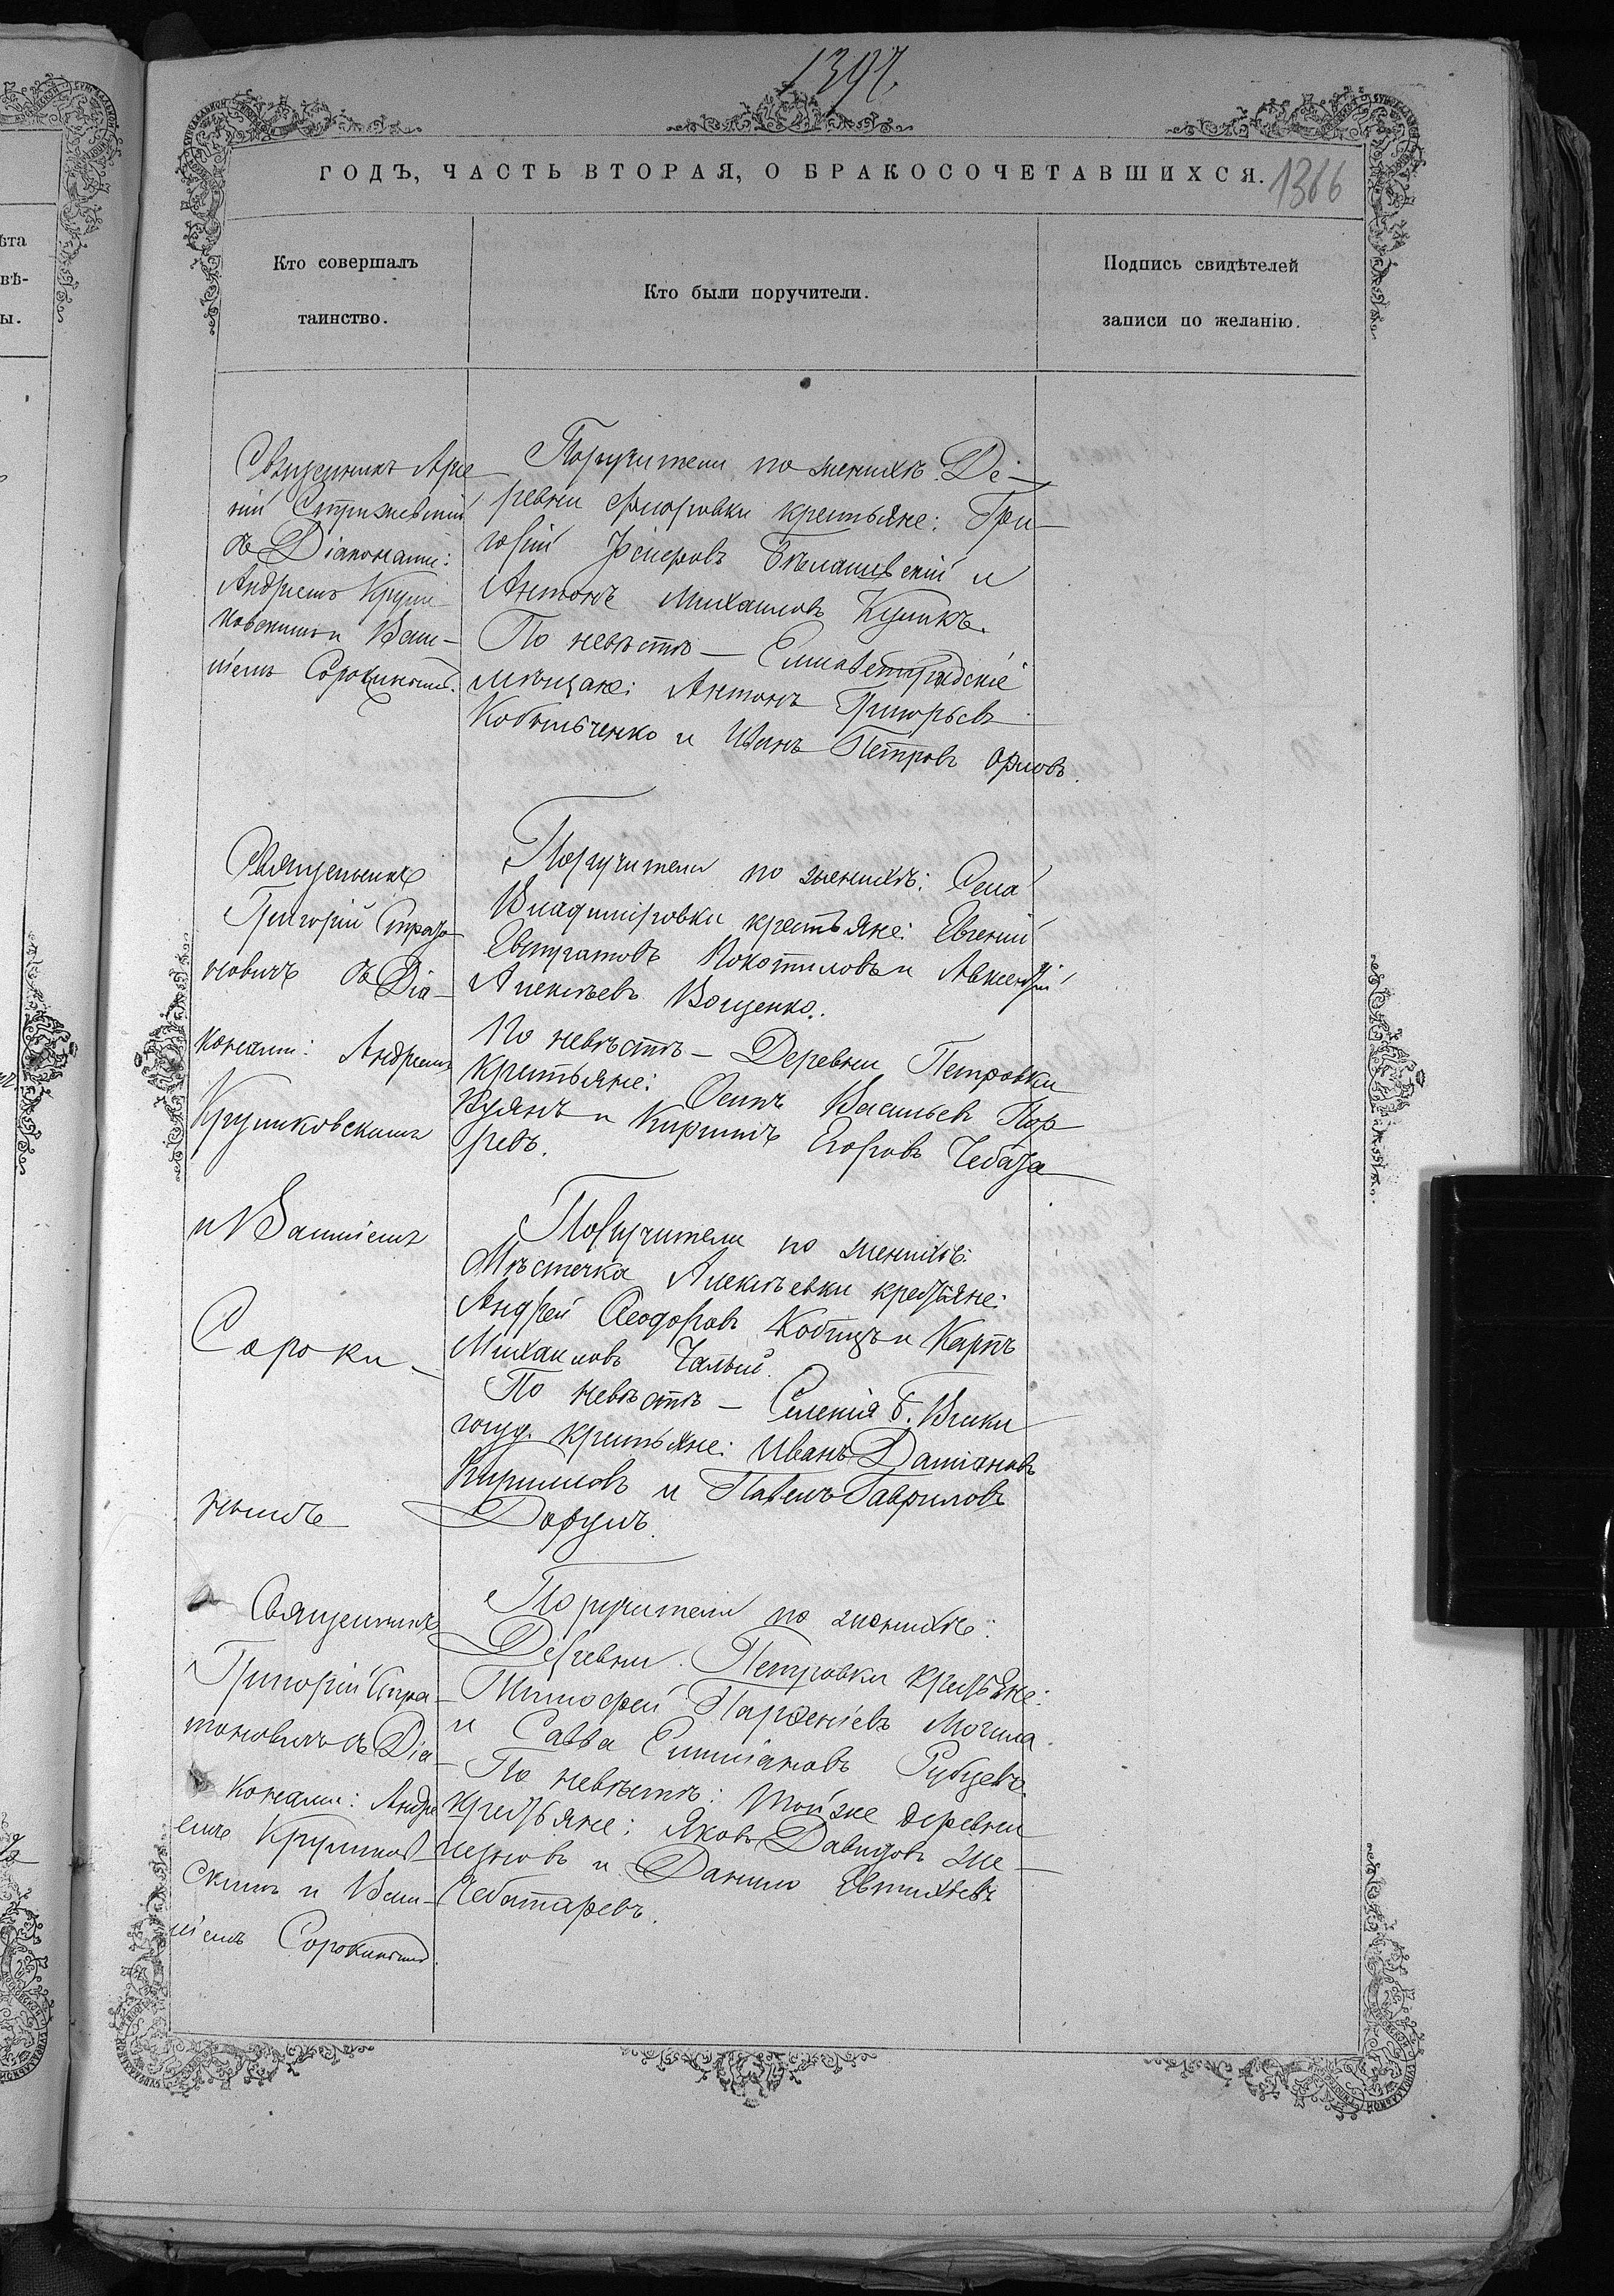 1397.
ГОДЪ, ЧАСТЬ ВТОРАЯ, О БРАКОСОЧЕТАВШИХСЯ.
1366
Кто совершалъ
таинство.
Кто были поручители.
Подпись свидѣтелей
записи по желанію.
Священникъ Арсе
ній Стрижевскій
съ Діаконами:
Андреемъ Крули
ковскимъ и Васи-
ліемъ Сорокинымъ.
Поручители по женихѣ: Де-
ревни крестьяне: Гри-
горій Бѣлашевскій и
Антонъ Михаиловъ Куликъ.
По невѣстѣ – Елисаветградскіе
мѣщане: Антонъ Григорьевъ
Кобыльченко и Иванъ Петровъ Орловъ.
Священникъ
Григорій
новичъ съ Діа-
конами: Андреемъ
Круликовскимъ
и Василіемъ
Сороки-
нымъ
Поручители по женихѣ: Села
Владиміровки крестьяне: Евгеній
Евстратовъ Кокотиловъ и Авксентій
Алексѣевъ Вощенко.
По невѣстѣ – Деревни Петровки
крестьяне: Осипъ Васильевъ Пор
кулянъ и Кириллъ Егоровъ Чебота
ревъ.
Поручители по женихѣ:
Мѣстечка Алексѣевки крестьяне:
Андрей Ѳеодоровъ Кобицъ и Карпъ
Михаиловъ Чалый.
По невѣстѣ – Селенія Б. Виски
госуд. крестьяне: Иванъ Даміановъ
Кирилловъ и Павелъ Гавриловъ
Дорулъ.
Священникъ
Григорій Стра-
тоновичъ съ Діа-
конами: Андре
емъ Круликов-
скимъ и Васи-
ліемъ Сорокинымъ.
Поручители по женихѣ:
Деревни Петровки крестьяне:
Тимофей Парѳеніевъ Могила
и Савва Емиліановъ Рубцевъ
По невѣстѣ: Той же деревни
крестьяне: Яковъ Давидовъ Же-
и Данило Евтихіевъ
Чеботаревъ.